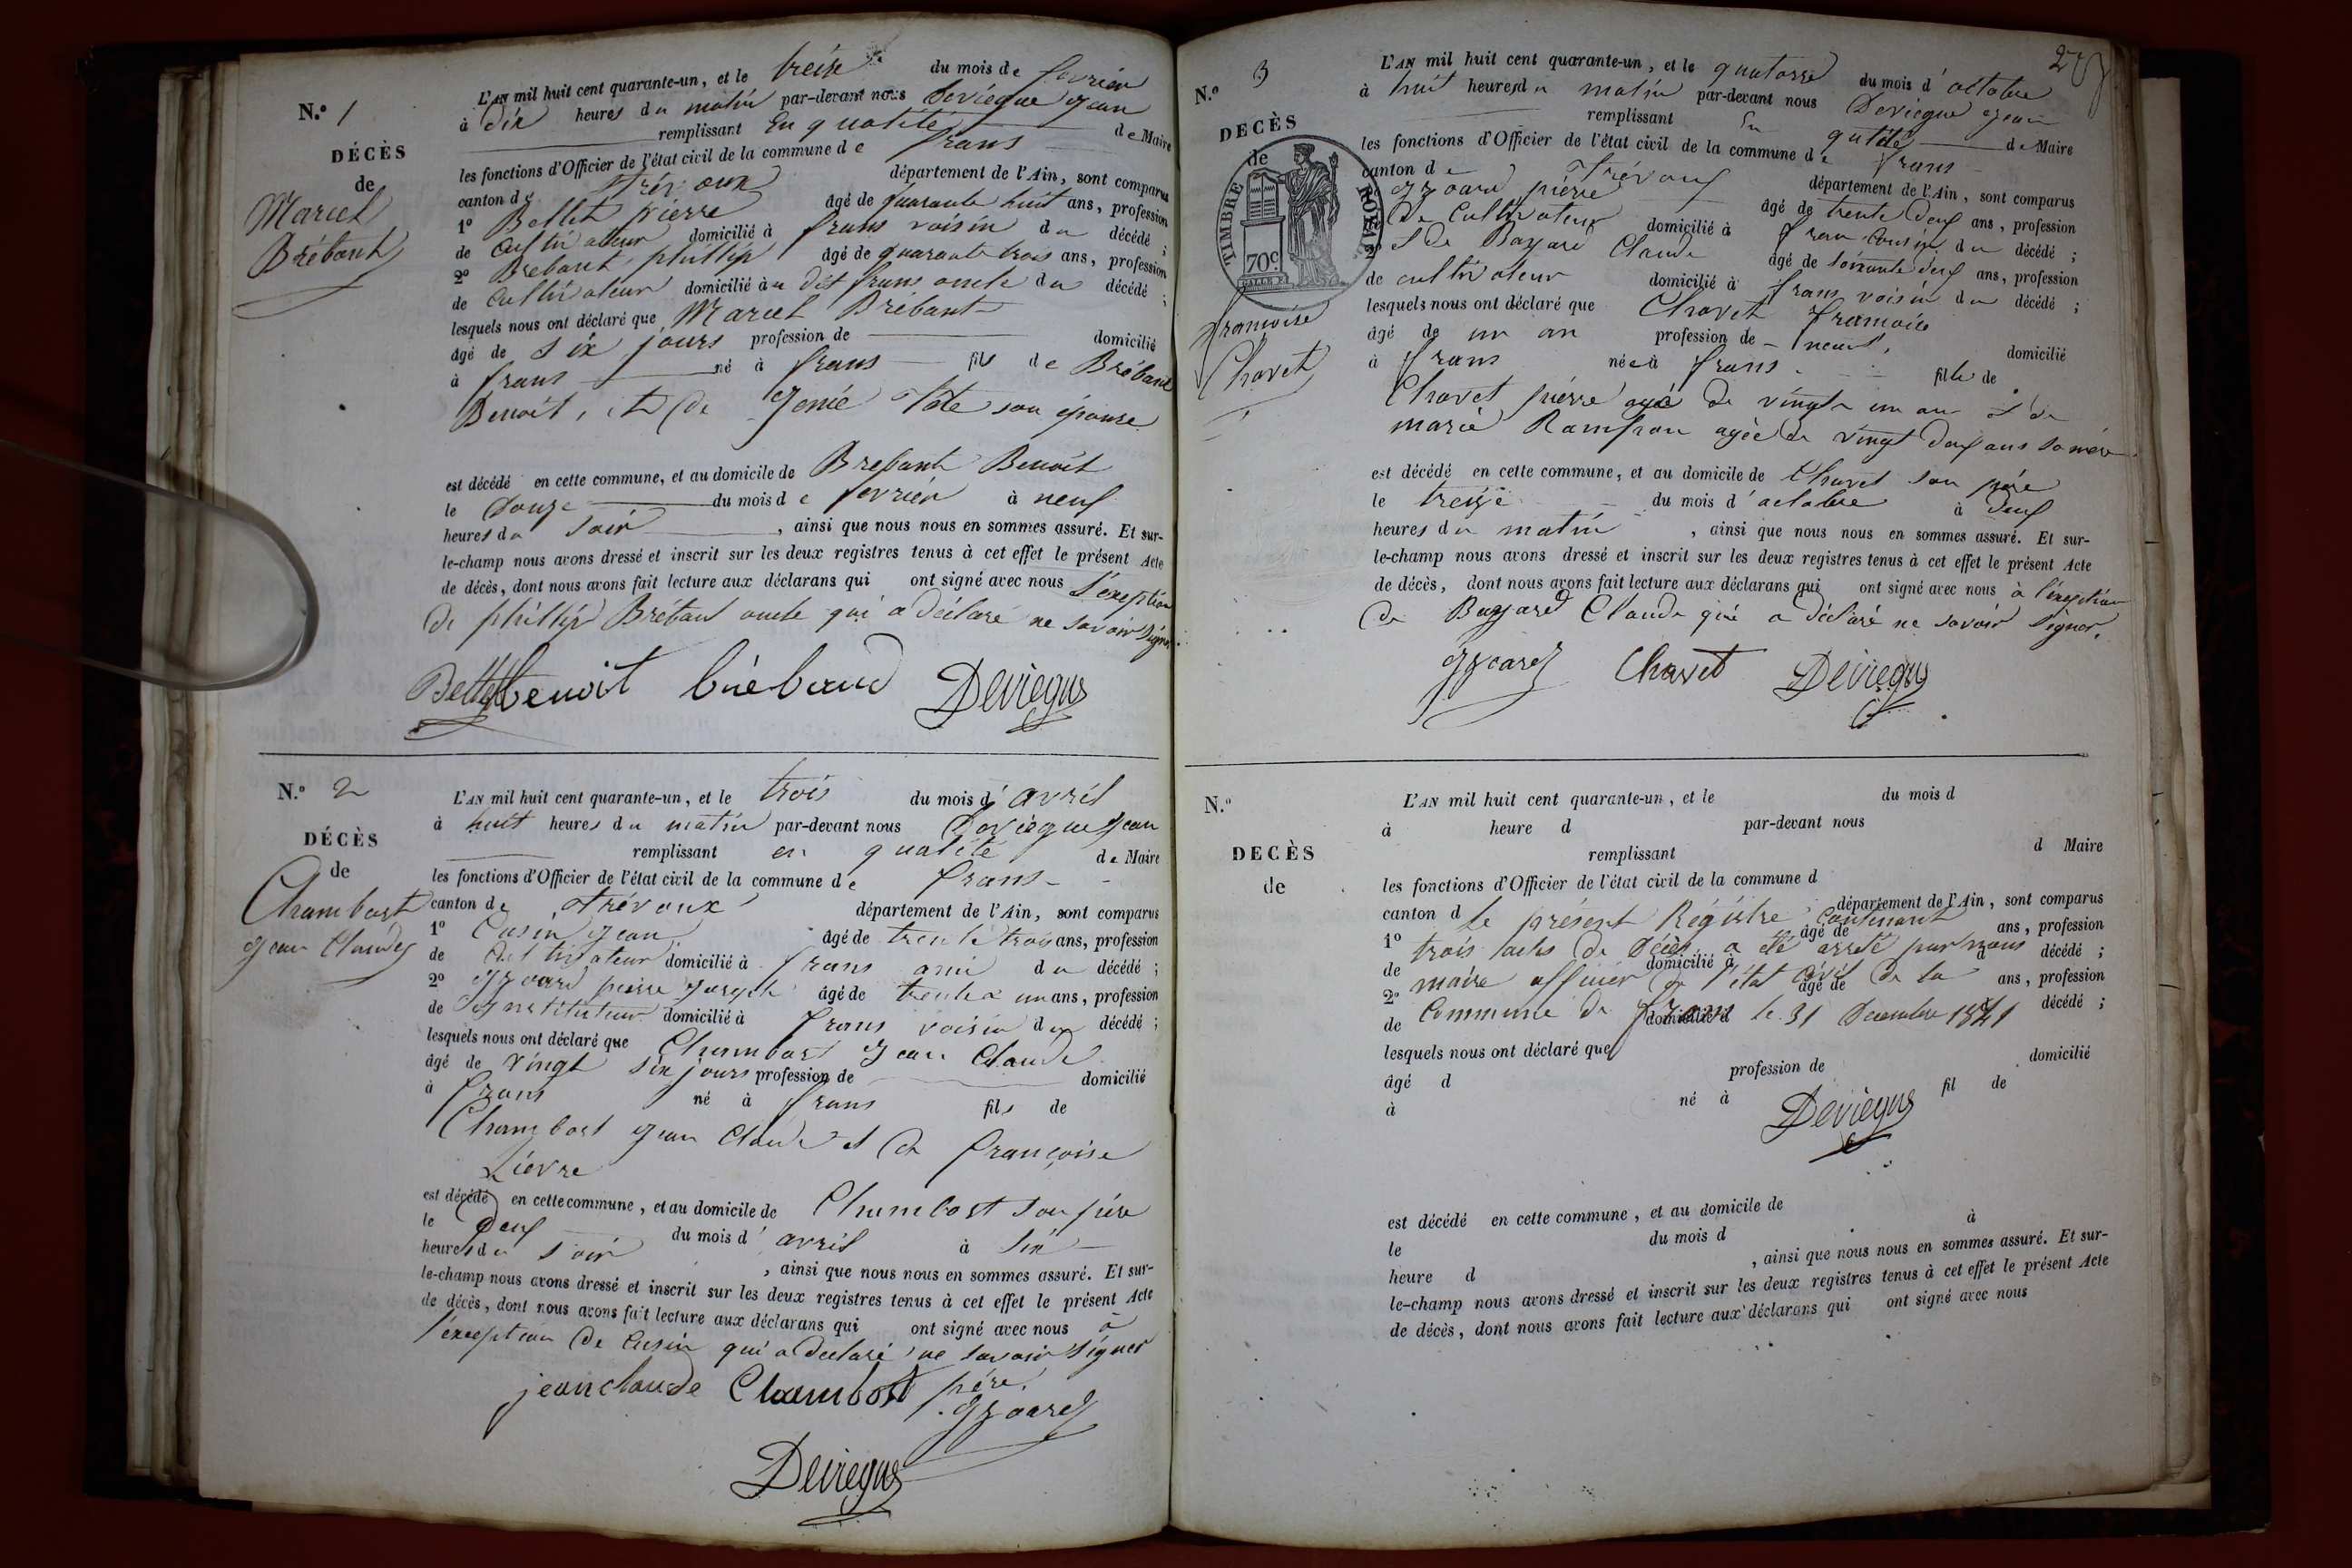 N.º 1
DÉCÈS
de
Marcel
Brébant
L'AN mil huit cent quarante-un, et le treize du mois de fevrier
à dix heures du matin par-devant nous Deviegue Jean
remplissant En qualité de Maire
les fonctions d'Officier de l'état civil de la commune de frans
canton de trévoux département de l'Ain, sont comparus
1º Bellet pierre âgé de quarante huit ans, profession
de Cultivateur domicilié à frans voisin du décédé ;
2º Brebant phillip âgé de quarante trois ans, profession
de Cultivateur domicilié au dit frans oncle du décédé ;
lesquels nous ont déclaré que Marcel Brébant
âgé de six jours profession de domicilié
à frans né à frans fils de Brébant
Benoit, et de son épouse
est décédé en cette commune, et au domicile de Brebant Benoit
le douze du mois de fevrier à neuf
heures du soir, ainsi que nous nous en sommes assuré. Et sur-
le-champ nous avons dressé et inscrit sur les deux registres tenus à cet effet le présent Acte
de décès, dont nous avons fait lecture aux déclarans qui ont signé avec nous l'exeption
de phillip Brébant oncle qui a déclaré ne savoir signer.
Bellet benoit bréband Deviegue
N.º 2
DÉCÈS
de
Chambost
Jean Claude
L'AN mil huit cent quarante-un, et le trois du mois d'avril
à huit heures du matin par-devant nous Deviegue Jean
remplissant en qualité de Maire
les fonctions d'Officier de l'état civil de la commune de frans
canton de trévoux département de l'Ain, sont comparus
1º Cusin Jean âgé de trente trois ans, profession
de Cultivateur domicilié à frans ami du décédé ;
2º Gzoard pierre Joseph âgé de trente un ans, profession
de Instituteur domicilié à frans voisin du décédé ;
lesquels nous ont déclaré que Chambost Jean Claude
âgé de vingt six jours profession de domicilié
à frans né à frans fils de
Chambost Jean Claude et de françoise
Lievre
est décédé en cette commune, et au domicile de Chambost son père
le deux du mois d'avril à six
heures du soir, ainsi que nous nous en sommes assuré. Et sur-
le-champ nous avons dressé et inscrit sur les deux registres tenus à cet effet le présent Acte
de décès, dont nous avons fait lecture aux déclarans qui ont signé avec nous à
l'exception de Cusin qui a declaré ne savoir signer
jean claude Chambost père.
Gzoard
Deviegue
N.º 3
DECÈS
de
TIMBRE ROYAL
70c
françoise
Chavet
L'AN mil huit cent quarante-un, et le quatorze du mois d'octobre
à huit heures du matin par-devant nous Deviegue Jean
remplissant En qualité de Maire
les fonctions d'Officier de l'état civil de la commune de frans
canton de Trévoux département de l'Ain, sont comparus
Gzoard pierre âgé de trente deux ans, profession
de Cultivateur domicilié à frans cousin du décédé ;
2º et de Bayard Claude âgé de soixante deux ans, profession
de cultivateur domicilié à frans voisin du décédé ;
lesquels nous ont déclaré que Chavet françoise
âgé de un an profession de domicilié
à frans née à frans fille de
Chavet pierre agé de vingt un an et de
marie agée de vingt deux ans sa mère
est décédé en cette commune, et au domicile de Chavet son père
le treize du mois d'octobre à deux
heures du matin, ainsi que nous nous en sommes assuré. Et sur-
le-champ nous avons dressé et inscrit sur les deux registres tenus à cet effet le présent Acte
de décès, dont nous avons fait lecture aux déclarans qui ont signé avec nous à l'exeption
de Bayard Claude qui a déclaré ne savoir signer.
Gzoard Chavet Deviegue
N.º
DECÈS
de
L'AN mil huit cent quarante-un, et le du mois d
à heure d par-devant nous
remplissant d Maire
les fonctions d'Officier de l'état civil de la commune d
canton d département de l'Ain, sont comparus
le présent Régistre contenant
1º âgé de ans, profession
trois actes de décès a été arreté par nous
de domicilié à d décédé ;
maire officier de l'état civil de la
2º âgé de ans, profession
Commune de frans le 31 Decembre 1841
de domicilié à décédé ;
lesquels nous ont déclaré que
âgé d profession de domicilié
à né à fil de
Deviegue
est décédé en cette commune, et au domicile de
le du mois d à
heure d, ainsi que nous nous en sommes assuré. Et sur-
le-champ nous avons dressé et inscrit sur les deux registres tenus à cet effet le présent Acte
de décès, dont nous avons fait lecture aux déclarans qui ont signé avec nous